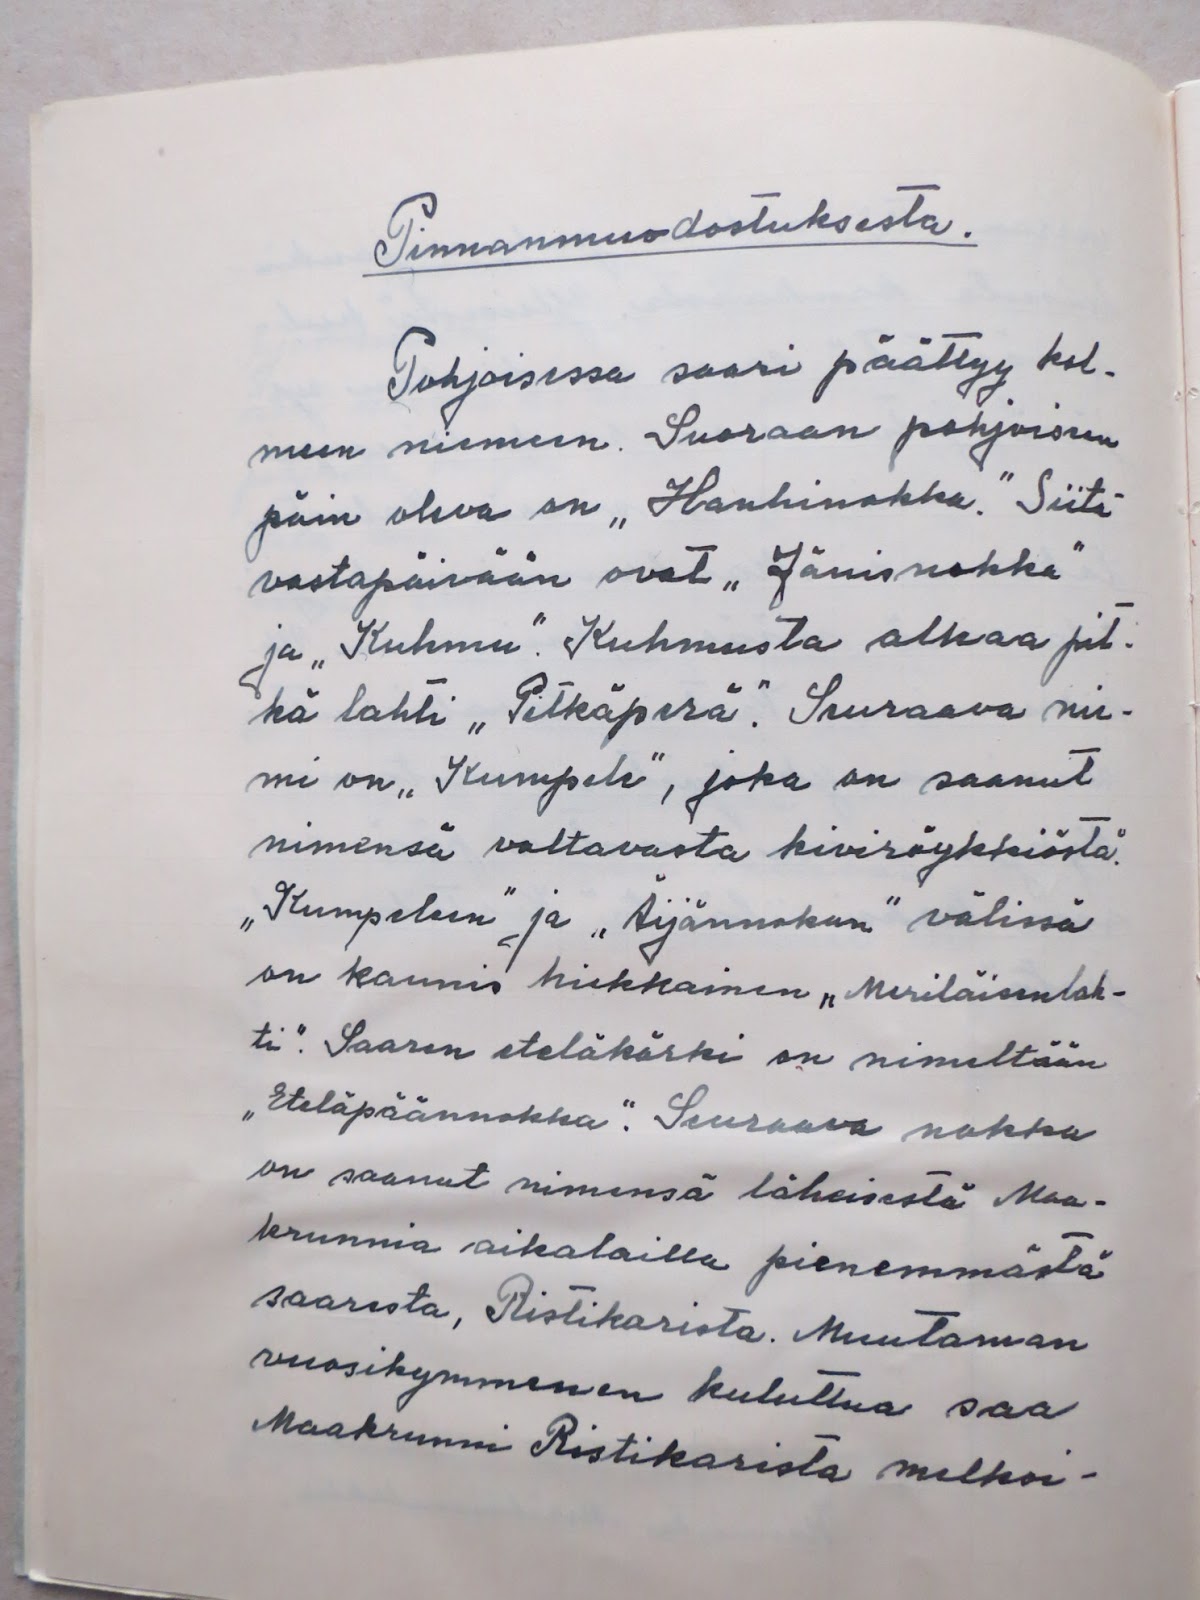 Pinnanmuodostuksesta.
Pohjoisessa saari päättyy kol-
meen niemeen. Suoraan pohjoiseen
päin oleva on „Hanhinokka." Siitä
vastapäivään ovat „Jänisnokka"
ja „Kuhmu". Kuhmusta alkaa pit-
kä lahti „Pitkäperä". Seuraava nie-
mi on „Kumpele", joka on saanut
nimensä valtavasta kiviröykkiöstä.
„Kumpeleen" ja „Äijännokan" välissä
on kaunis hiekkainen „Meriläisenlah-
ti". Saaren eteläkärki on nimeltään
„Eteläpäännokka". Seuraava nokka
on saanut nimensä läheisestä Maa-
krunnia aikalailla pienemmästä
saaresta, Ristikarista. Muutaman
vuosikymmenen kuluttua saa
Maakrunni Ristikarista melkoi-